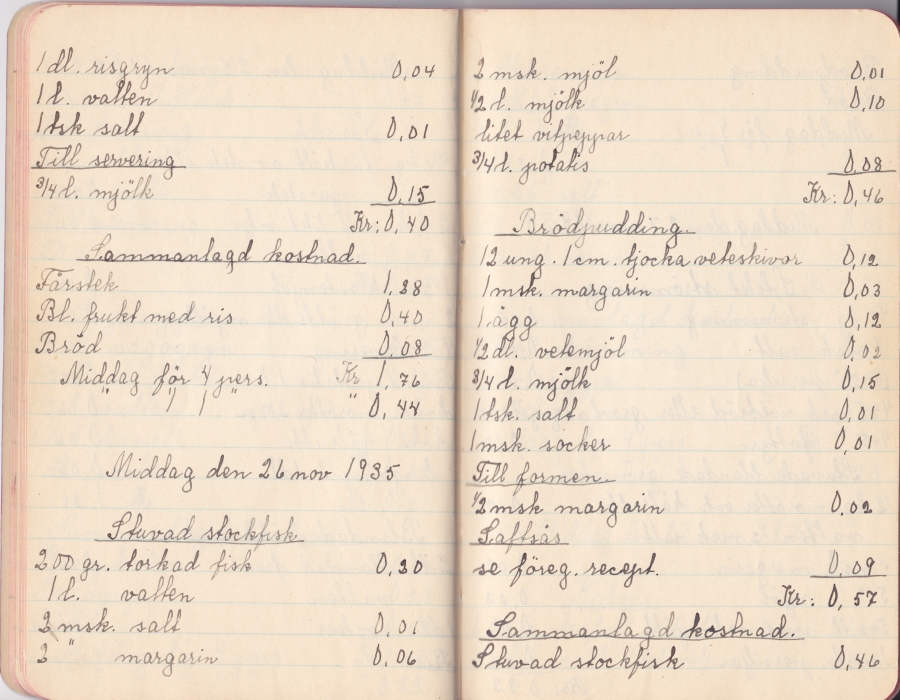 1 dl. risgryn 0,04
1 l. vatten
1 tsk salt 0,01
Till servering
3/4 l. mjölk 0,15
Kr: 0,40
Sammanlagd kostnad.
Fårstek 1,28
Bl. frukt med ris 0,40
Bröd 0,08
Middag för 4 pers. Kr 1,76
" " 1 " " 0,44
Middag den 26 nov 1935
Stuvad stockfisk
200 gr. torkad fisk 0,20
1 l. vatten
2 msk. salt 0,01
2 " margarin 0,06
2 msk. mjöl 0,01
1/2 l. mjölk 0,10
litet vitpeppar
3/4 l. potatis 0,08
Kr: 0,46
Brödpudding.
12 ung. 1 cm. tjocka veteskivor 0,12
1 msk. margarin 0,03
1 ägg 0,12
1/2 dl. vetemjöl 0,02
3/4 l. mjölk 0,15
1 tsk. salt 0,01
1 msk. socker 0,01
Till formen.
1/2 msk margarin 0,02
Saftsås
se föreg. recept. 0,09
Kr: 0,57
Sammanlagd kostnad.
Stuvad stockfisk 0,46